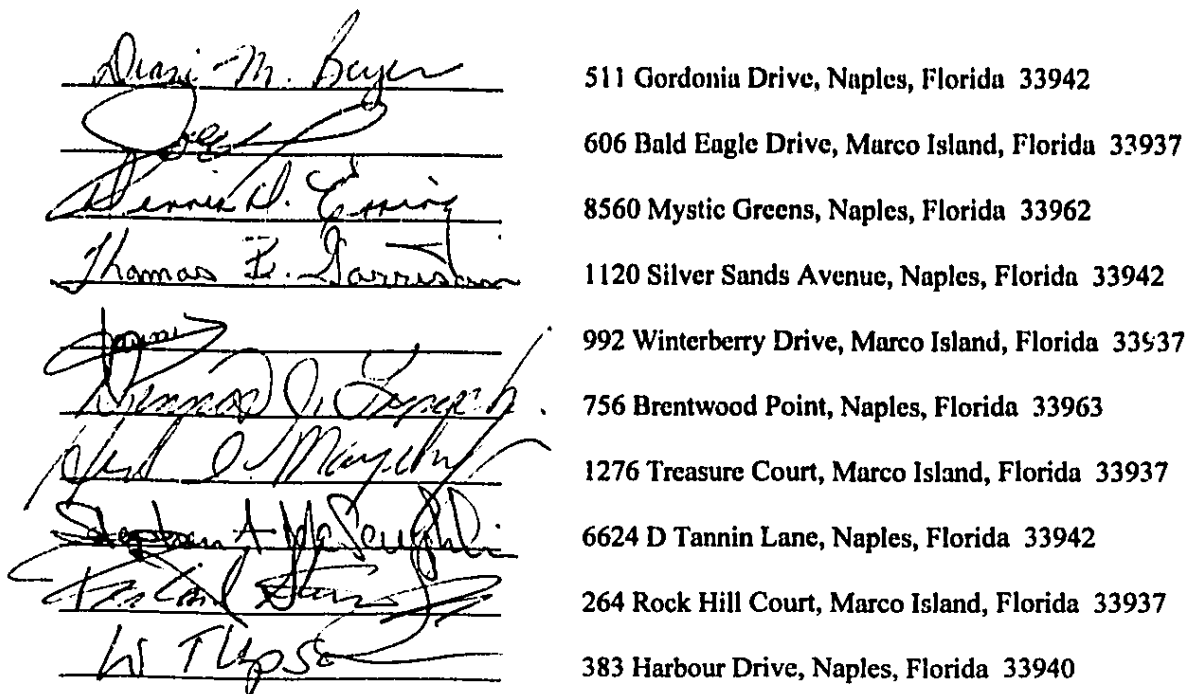 M. Beyer 511 Gordonia Drive, Naples, Florida 33942
606 Bald Eagle Drive, Marco Island, Florida 33937
Dennis D. 8560 Mystic Greens, Naples, Florida 33962
Thomas E. Garrison 1120 Silver Sands Avenue, Naples, Florida 33942
992 Winterberry Drive, Marco Island, Florida 33937
J. 756 Brentwood Point, Naples, Florida 33963
1276 Treasure Court, Marco Island, Florida 33937
Stephen A 6624 D Tannin Lane, Naples, Florida 33942
264 Rock Hill Court, Marco Island, Florida 33937
W 383 Harbour Drive, Naples, Florida 33940